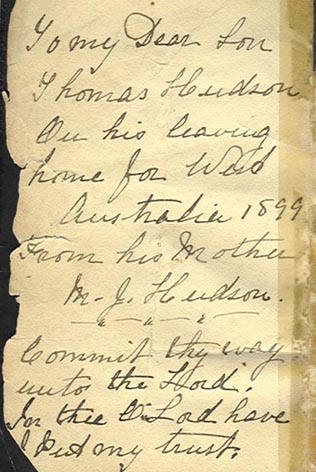 To my Dear Son
Thomas Hudson
On his leaving
home for West
Australia 1899
From his Mother
M. J. Hudson.
" " "
Commit thy way
unto the Lord.
In thee O Lord have
I Put my trust.